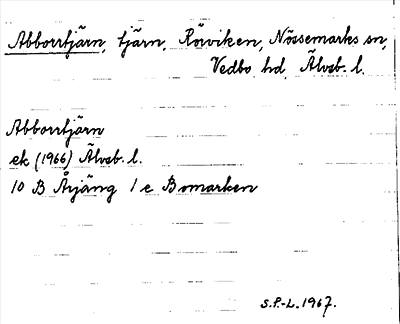 Abborrtjärn, tjärn, Rörviken, Nössemarks sn,
Vedbo hd, Älvsb. l.
Abborrtjärn
ek (1966) Älvsb. l.
10 B Årjäng 1 e Bomarken
S.P.-L. 1967.